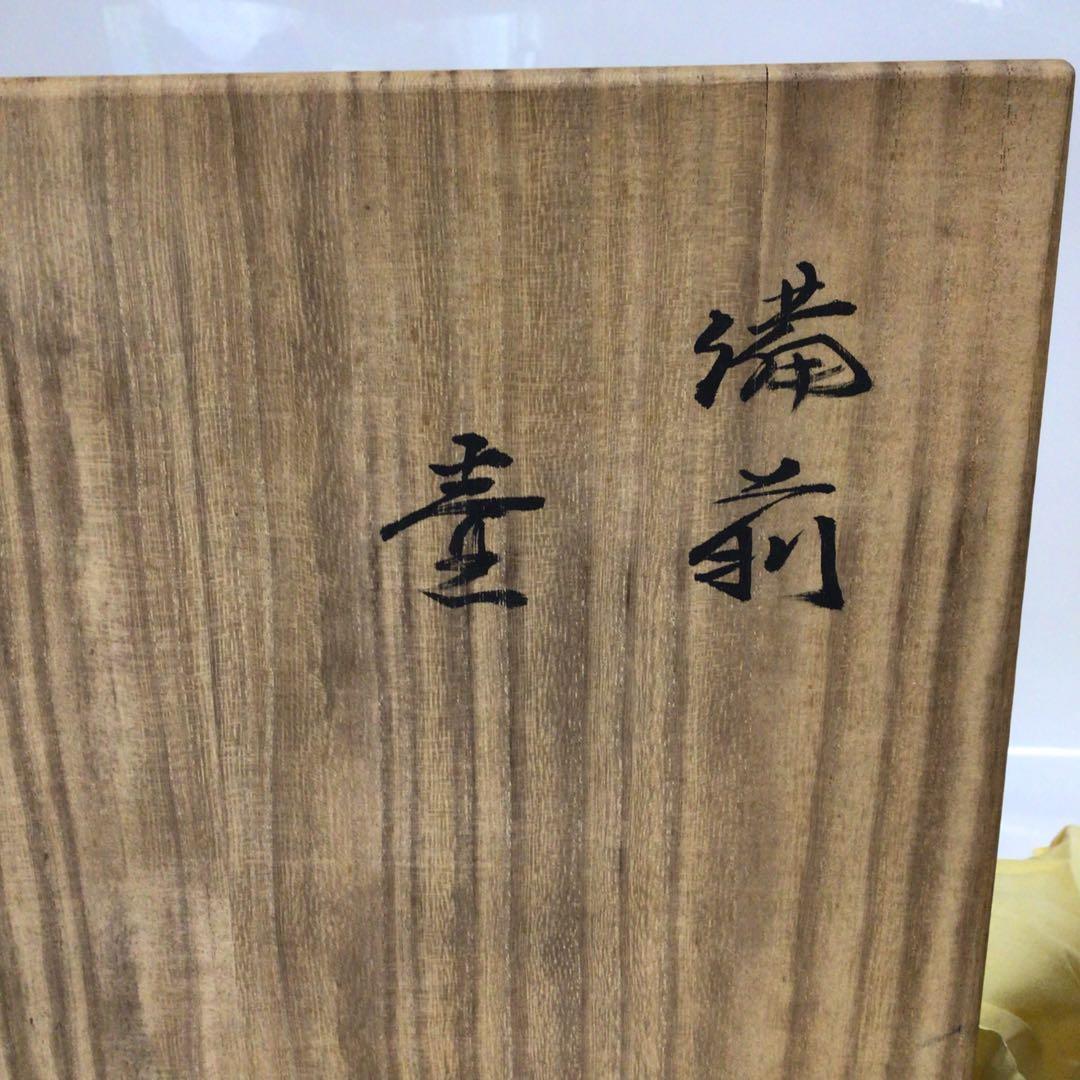 備前
壷